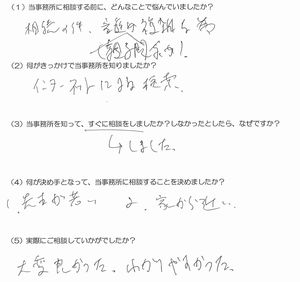 (1)当事務所に相談する前に、どんなことで悩んでいましたか?
相続の件、
(2)何がきっかけで当事務所を知りましたか?
インターネットによる検索
(3)当事務所を知って、すぐに相談をしましたか?しなかったとしたら、なぜですか?
↳しました。
(4)何が決め手となって、当事務所に相談することを決めましたか?
1、先生が若い 2、家から近い、
(5)実際にご相談していかがでしたか?
大変良かった、わかりやすかった。